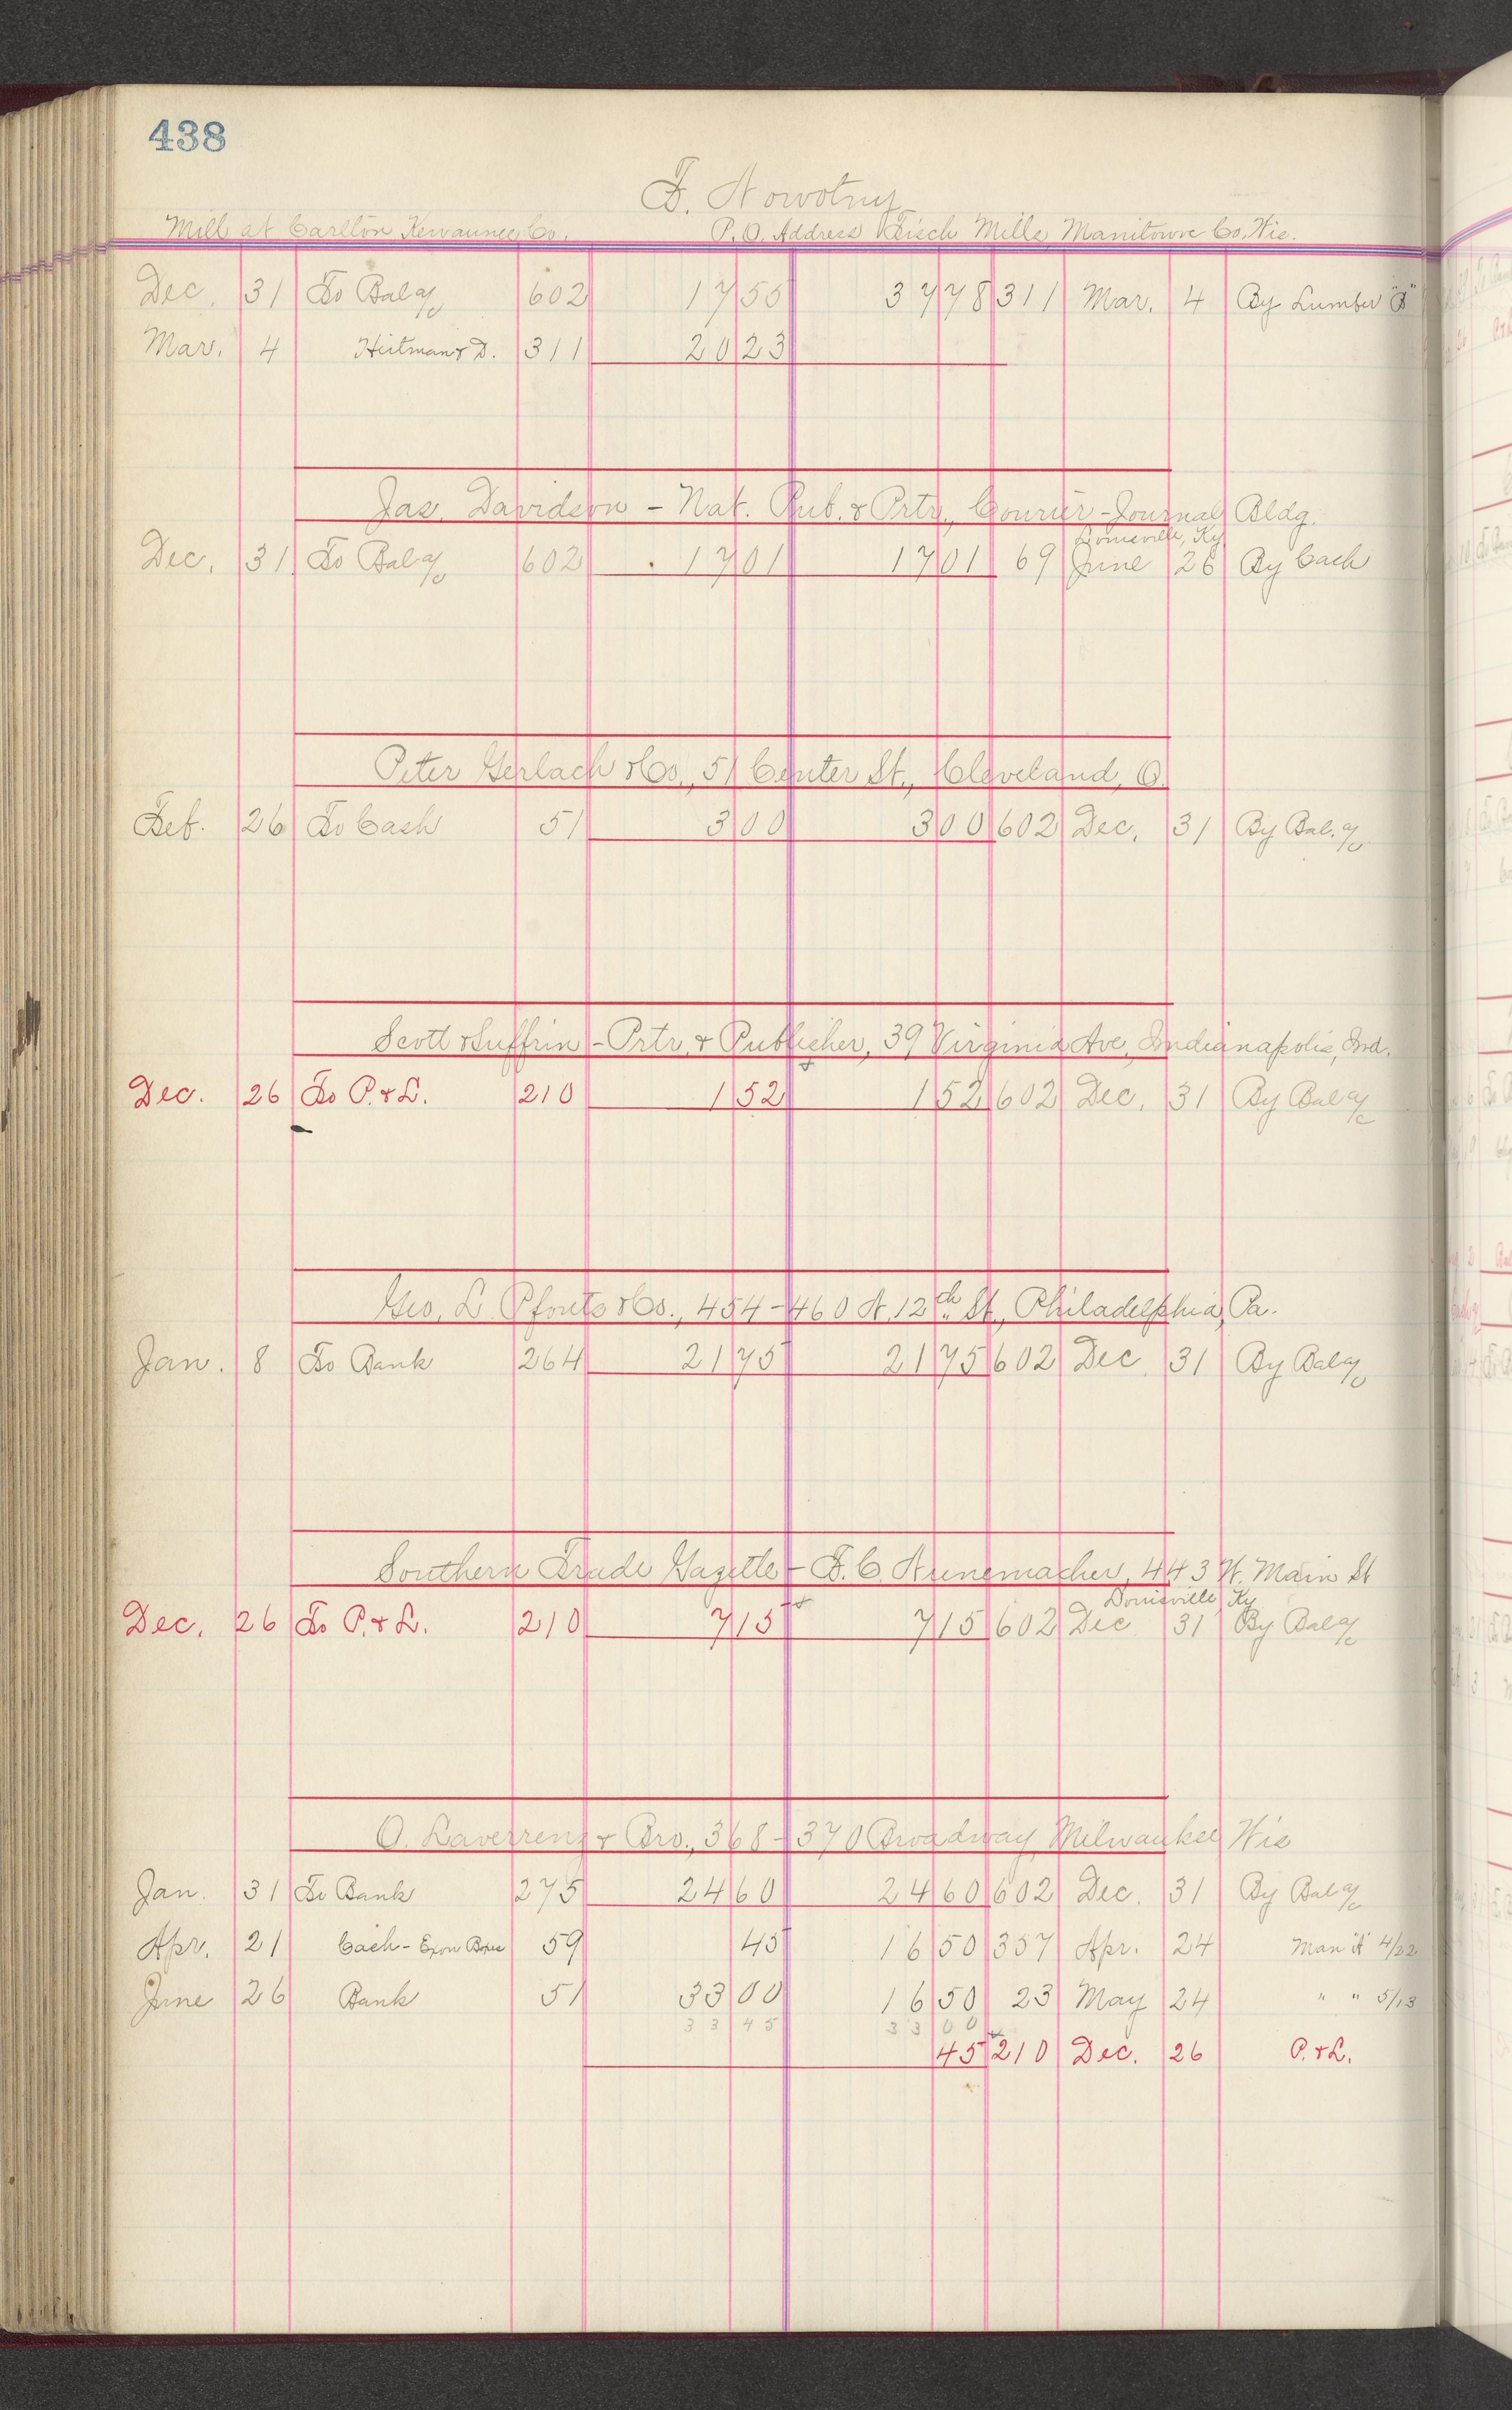 438
F. Nowotny
Mill at Carlton Kewaunee Co. P.O. Address Tisch Mills Manitowoc Co. Wis.
Dec. 31 To Bal a/c 602 17 55 37 78 311 Mar. 4 By Lumber "B"
Mar. 4 311 20 23
Jas. Davidson - Nat. Pub. & Prtr., Courier-Journal Bldg.
Louisville, Ky
Dec. 31 To Bal a/c 602 17 01 17 01 69 June 26 By Cash
Peter Gerlach & Co., 51 Center St., Cleveland, O.
Feb. 26 To Cash 51 3 00 3 00 602 Dec. 31 By Bal. a/c
Scott & Suffrin - Prtr. & Publisher, 39 Virginia Ave, Indianapolis, Ind.
Dec. 26 To P. & L. 210 1 52 1 52 602 Dec. 31 By Bal a/c
Geo. L. Pfouts & Co., 454-460 N. 12th St., Philadelphia, Pa.
Jan. 8 To Bank 264 21 75 21 75 602 Dec. 31 By Bal a/c
Southern Trade Gazette - F. C. Nunemacher, 443 W. Main St
Louisville, Ky
Dec. 26 To P. & L. 210 7 15 7 15 602 Dec 31 By Bal a/c
O. Laverrenz & Bro., 368-370 Broadway, Milwaukee Wis
Jan. 31 To Bank 275 24 60 24 60 602 Dec. 31 By Bal a/c
Apr. 21 Cash - 59 45 16 50 357 Apr. 24 Man "A" 4/22
June 26 Bank 51 33 00 16 50 23 May 24 " " 5/13
33 45 33 00
45 210 Dec. 26 P. & L.